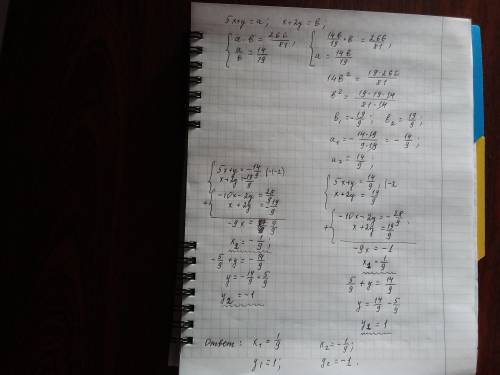 5x+y = a;   x+2y = в;
{ a·в = 266/81;
a/в = 14/19
{ 14в/19 · в = 266/81;
a = 14в/19
14в² = 19·266/81
в² = 19·19·14/81·14
в₁ = -19/9;   в₂ = 19/9;
a₁ = -14·19/9·19 = -14/9;
a₂ = 14/9;
{ 5x+y = -14/9 |·(-2)
x+2y = -19/9
+ { -10x-2y = 28/9
x+2y = -19/9
-9x = 9/9
x₂ = -1/9;
-5/9 + y = -14/9
y = -14/9 + 5/9
y₂ = -1
{ 5x+y = 14/9 |·-2
x+2y = 19/9
+ { -10x-2y = -28/9
x+2y = 19/9
-9x = -1
x₁ = 1/9
5/9 + y = 14/9
y = 14/9 - 5/9
y₂ = 1
Ответ:   x₁ = 1/9   x₂ = -1/9;
y₁ = 1;   y₂ = -1.